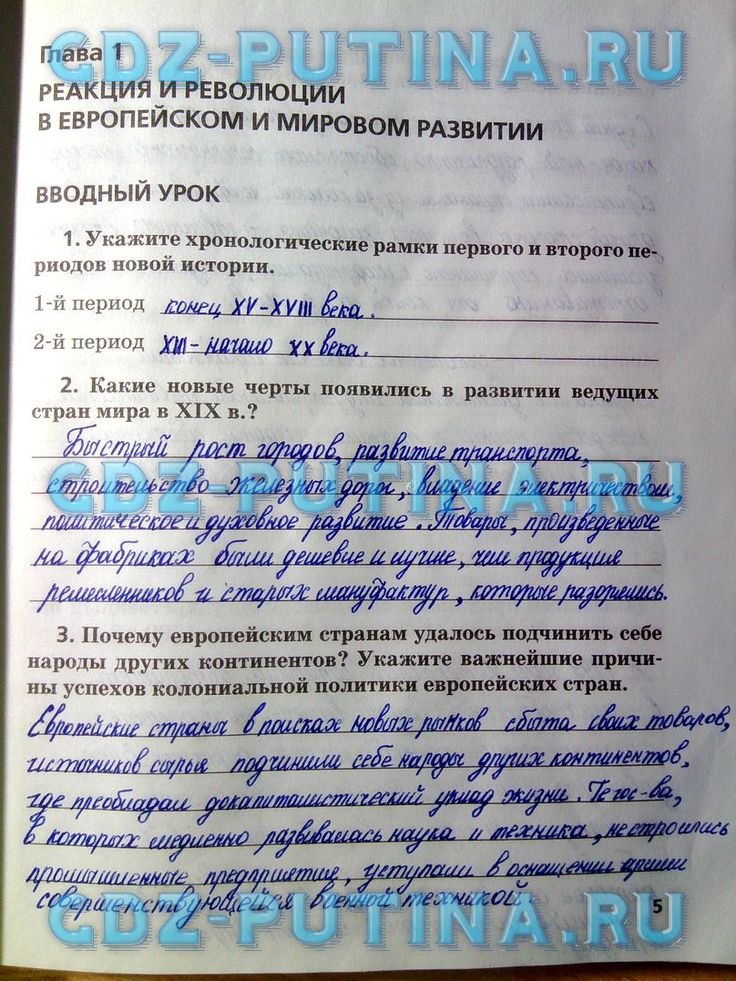 GDZ-PUTINA.RU
Глава 1
РЕАКЦИЯ И РЕВОЛЮЦИИ
В ЕВРОПЕЙСКОМ И МИРОВОМ РАЗВИТИИ
ВВОДНЫЙ УРОК
1. Укажите хронологические рамки первого и второго пе-
риодов новой истории.
1-й период конец XV-XVIII века.
2-й период XIII- начало XX века.
2. Какие новые черты появились в развитии ведущих
стран мира в XIX в.?
Быстрый рост городов, развитие транспорта,
GDZ-PUTINA.RU
строительство железных дорог, владение электричеством,
политическое и духовное развитие. Товары, произведенные
на фабриках были дешевле и лучше, чем продукция
ремесленников и старых мануфактур, которые разорялись.
3. Почему европейским странам удалось подчинить себе
народы других континентов? Укажите важнейшие причи-
ны успехов колониальной политики европейских стран.
Европейские страны в поисках новых рынков сбыта своих товаров,
источников сырья подчинили себе народы других континентов,
где преобладал докапиталистический уклад жизни. Те гос-ва,
в которых медленно развивалась наука и техника, не строились
промышленные предприятия, уступали в оснащении армии
совершенствующейся военной техникой.
5
GDZ-PUTINA.RU